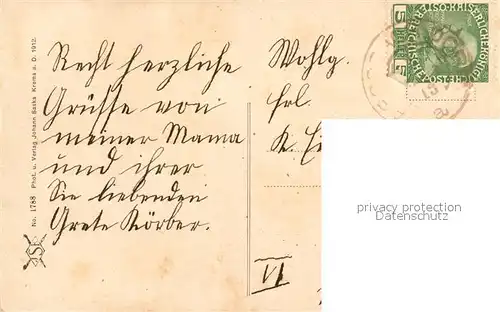 Recht herzliche
Grüsse von
meiner Mama
und ihrer
Sie liebenden
Grete Körber.
Wohlg.
Frl.
VI
No. 1788 Phot. u. Verlag Johann Saska Krems a. D. 1912.
S
5 HELLER 5
KAISERLICHE KÖNIGLICHE ÖSTERREICHISCHE POST
Privatsphäre
Datenschutz